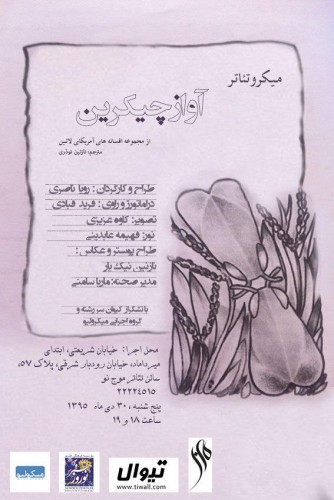 میکروتئاتر
آواز چیکرین
از مجموعه افسانه های آمریکای لاتین
مترجم: نازنین نوذری
طراح و کارگردان: رویا ناصری
دراماتورژ و راوی: فرید قبادی
تصویر: کاوه عزیزی
نور: فهیمه عابدینی
طراح پوستر و عکاس:
نازنین نیک یار
مدیر صحنه: ماریا سامنی
با تشکر از کیوان سررشته و
گروه اجرایی میکرولیو
محل اجرا: خیابان شریعتی، ابتدای
میرداماد، خیابان رودبار شرقی، پلاک ۵۷،
سالن تئاتر موج نو
۲۲۲۲۴۵۱۵
پنج شنبه، ۳۰ دی ماه ۱۳۹۵
ساعت ۱۸ و ۱۹
میکرولیو
نوروز هنر
تیوال
www.tiwall.com